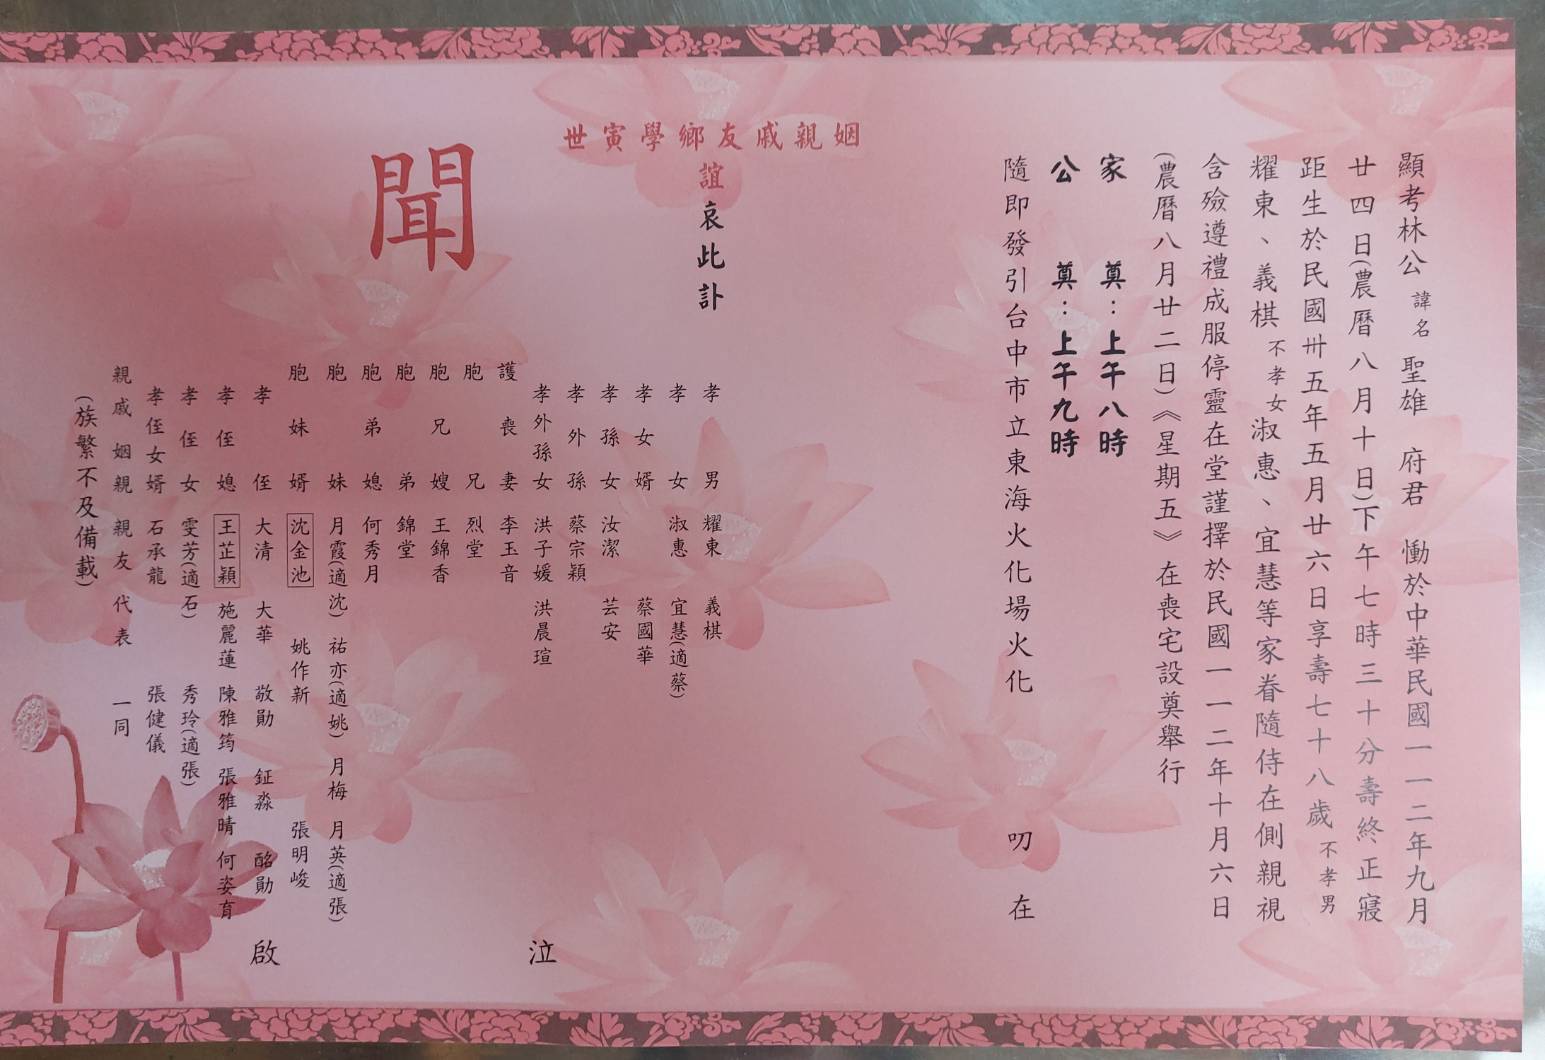 顯考林公諱名聖雄 府君 慟於中華民國一一二年九月
廿四日(農曆八月十日)下午七時三十分壽終正寢
距生於民國卅五年五月廿六日享壽七十八歲 不孝男
耀東、義棋不孝女淑惠、宜慧等家眷隨侍在側親視
含殮遵禮成服停靈在堂謹擇於民國一一二年十月六日
(農曆八月廿二日)《星期五》在喪宅設奠舉行
家 奠:上午八時
公 奠:上午九時
隨即發引台中市立東海火化場火化 叨 在
姻親戚友鄉學寅世
誼哀此訃
聞
孝男 耀東 義棋
孝女 淑惠 宜慧(適蔡)
孝女婿 蔡國華
孝孫女 汝潔 芸安
孝外孫 蔡宗穎
孝外孫女 洪子媛 洪晨瑄 泣
護喪妻 李玉音
胞兄 烈堂
胞兄嫂 王錦香
胞弟 錦堂
胞弟媳 何秀月
胞妹 月霞(適沈) 祐亦(適姚) 月梅 月英(適張)
胞妹婿 沈金池 姚作新 張明峻
孝侄 大清 大華 敬勛 鉦淼 酩勛 啟
孝侄媳 王芷穎 施麗蓮 陳雅筠 張雅晴 何姿育
孝侄女 雯芳(適石) 秀玲(適張)
孝侄女婿 石承龍 張健儀
親戚姻親親友代表 一同
(族繁不及備載)